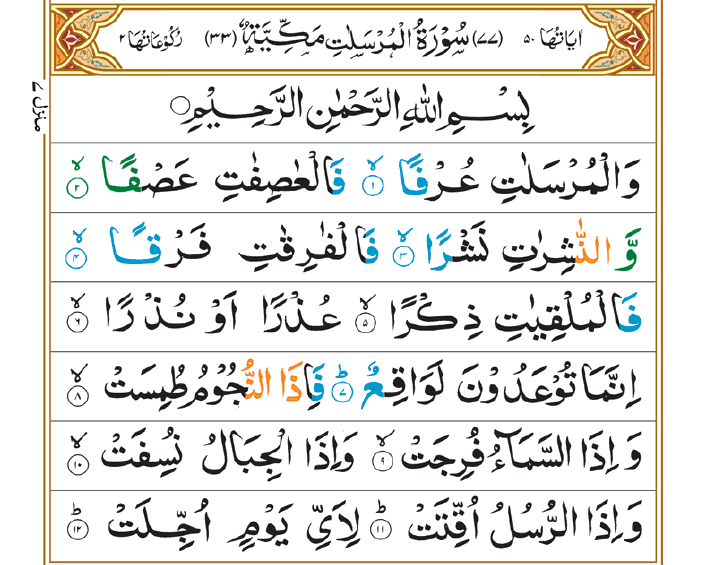 اٰیَاتُهَا ۵۰ (۷۷) سُوْرَةُ الْمُرْسَلٰتِ مَكِّیَّةٌ (۳۳) رُكُوْعَاتُهَا ۲
منزل ۷
بِسْمِ اللّٰهِ الرَّحْمٰنِ الرَّحِیْمِ ○
وَالْمُرْسَلٰتِ عُرْفًا ۙ﴿۱﴾ فَالْعٰصِفٰتِ عَصْفًا ۙ﴿۲﴾
وَّ النّٰشِرٰتِ نَشْرًا ۙ﴿۳﴾ فَالْفٰرِقٰتِ فَرْقًا ۙ﴿۴﴾
فَالْمُلْقِیٰتِ ذِكْرًا ۙ﴿۵﴾ عُذْرًا اَوْ نُذْرًا ۙ﴿۶﴾
اِنَّمَا تُوْعَدُوْنَ لَوَاقِعٌ ؕ﴿۷﴾ فَاِذَا النُّجُوْمُ طُمِسَتْ ۙ﴿۸﴾
وَ اِذَا السَّمَآءُ فُرِجَتْ ۙ﴿۹﴾ وَاِذَا الْجِبَالُ نُسِفَتْ ۙ﴿۱۰﴾
وَاِذَا الرُّسُلُ اُقِّتَتْ ؕ﴿۱۱﴾ لِاَیِّ یَوْمٍ اُجِّلَتْ ؕ﴿۱۲﴾